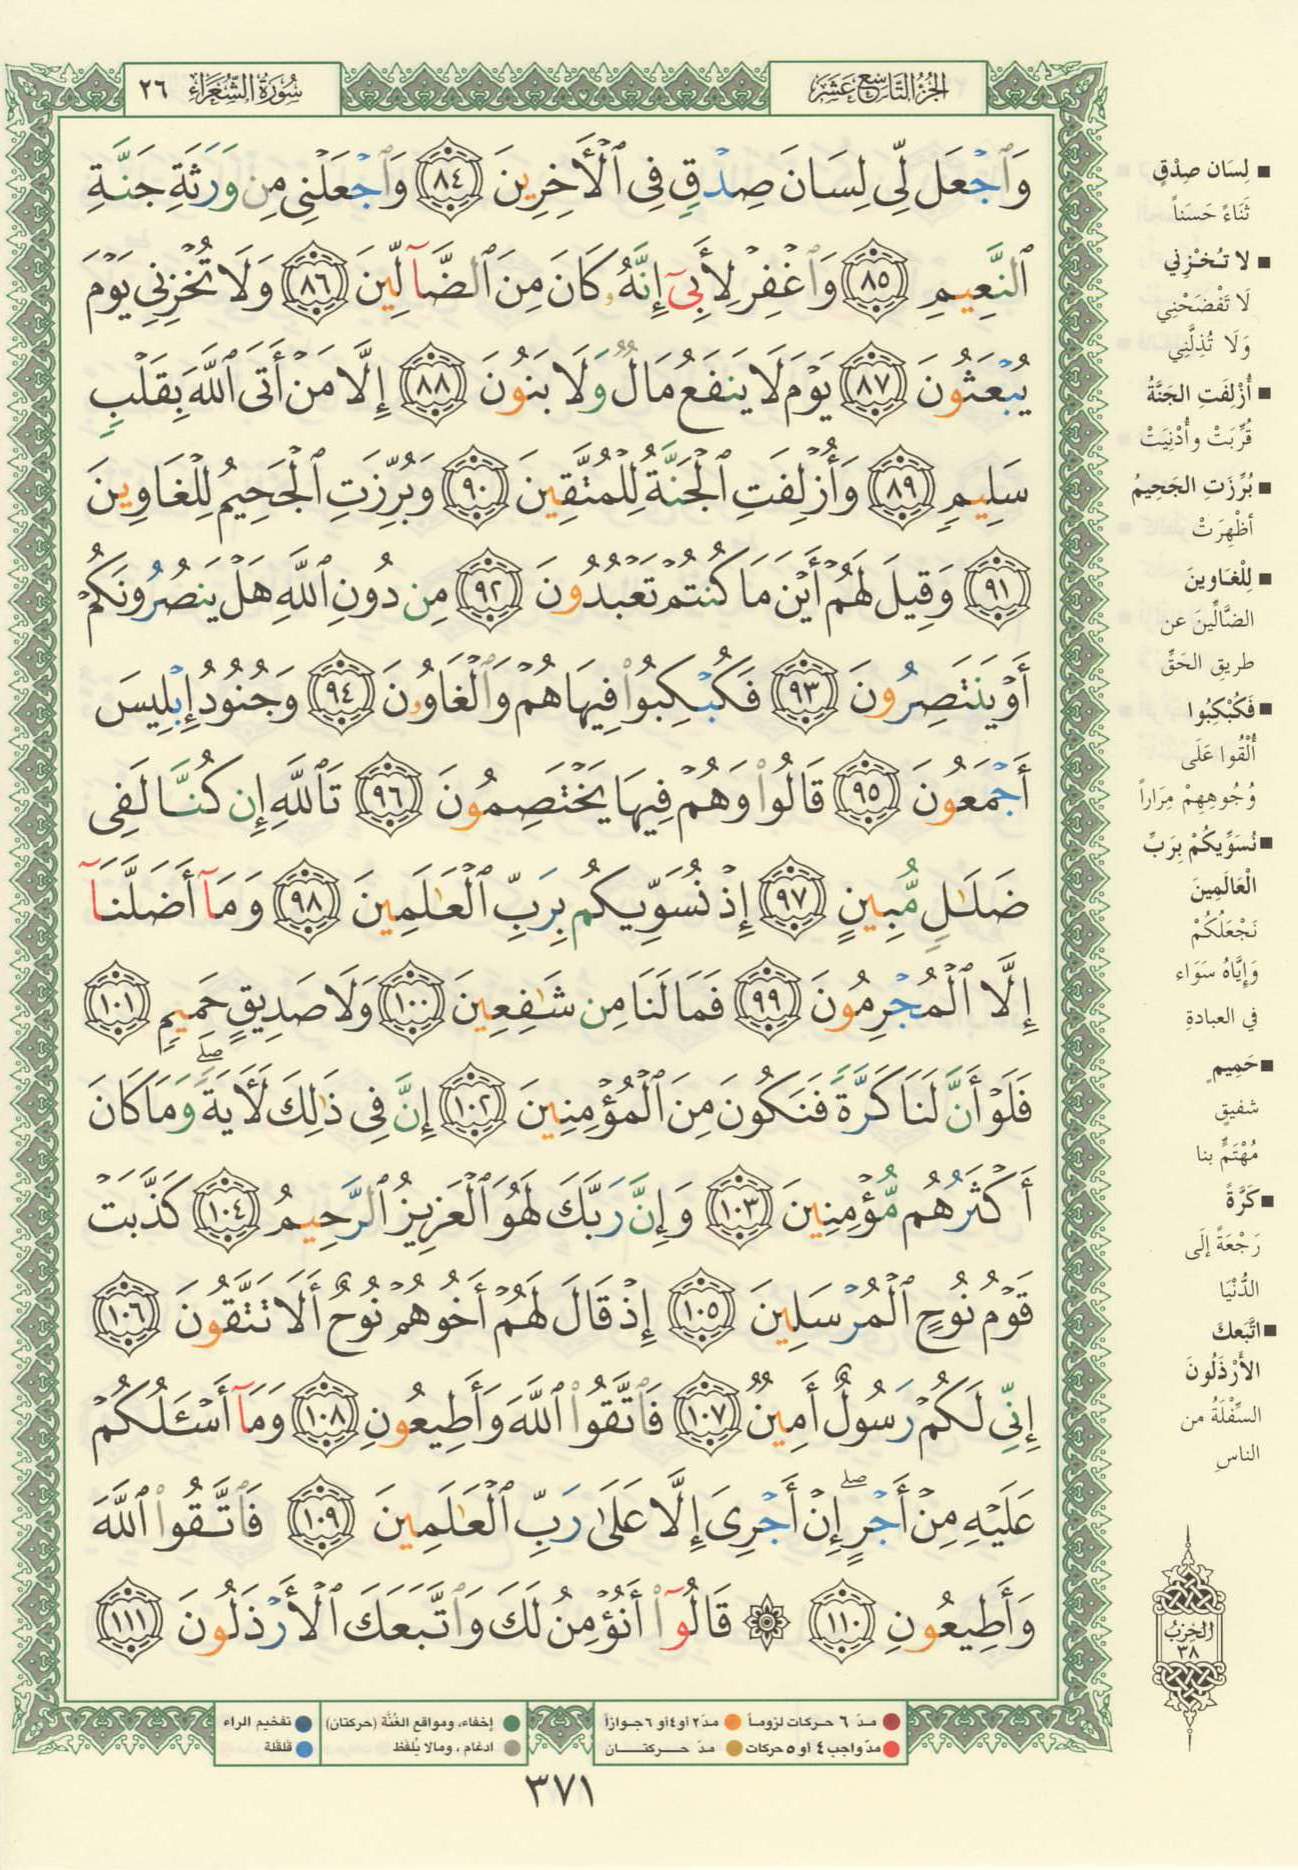 الجزء التاسع عشر
سورة الشعراء ٢٦
وَٱجْعَل لِّى لِسَانَ صِدْقٍ فِى ٱلْأَخِرِينَ ٨٤ وَٱجْعَلْنِى مِن وَرَثَةِ جَنَّةِ
ٱلنَّعِيمِ ٨٥ وَٱغْفِرْ لِأَبِىٓ إِنَّهُۥ كَانَ مِنَ ٱلضَّآلِّينَ ٨٦ وَلَا تُخْزِنِى يَوْمَ
يُبْعَثُونَ ٨٧ يَوْمَ لَا يَنفَعُ مَالٌ وَلَا بَنُونَ ٨٨ إِلَّا مَنْ أَتَى ٱللَّهَ بِقَلْبٍ
سَلِيمٍ ٨٩ وَأُزْلِفَتِ ٱلْجَنَّةُ لِلْمُتَّقِينَ ٩٠ وَبُرِّزَتِ ٱلْجَحِيمُ لِلْغَاوِينَ
٩١ وَقِيلَ لَهُمْ أَيْنَ مَا كُنتُمْ تَعْبُدُونَ ٩٢ مِن دُونِ ٱللَّهِ هَلْ يَنصُرُونَكُمْ
أَوْ يَنتَصِرُونَ ٩٣ فَكُبْكِبُوا۟ فِيهَا هُمْ وَٱلْغَاوُۥنَ ٩٤ وَجُنُودُ إِبْلِيسَ
أَجْمَعُونَ ٩٥ قَالُوا۟ وَهُمْ فِيهَا يَخْتَصِمُونَ ٩٦ تَٱللَّهِ إِن كُنَّا لَفِى
ضَلَٰلٍ مُّبِينٍ ٩٧ إِذْ نُسَوِّيكُم بِرَبِّ ٱلْعَٰلَمِينَ ٩٨ وَمَآ أَضَلَّنَآ
إِلَّا ٱلْمُجْرِمُونَ ٩٩ فَمَا لَنَا مِن شَٰفِعِينَ ١٠٠ وَلَا صَدِيقٍ حَمِيمٍ ١٠١
فَلَوْ أَنَّ لَنَا كَرَّةً فَنَكُونَ مِنَ ٱلْمُؤْمِنِينَ ١٠٢ إِنَّ فِى ذَٰلِكَ لَأَيَةً ۖ وَمَا كَانَ
أَكْثَرُهُم مُّؤْمِنِينَ ١٠٣ وَإِنَّ رَبَّكَ لَهُوَ ٱلْعَزِيزُ ٱلرَّحِيمُ ١٠٤ كَذَّبَتْ
قَوْمُ نُوحٍ ٱلْمُرْسَلِينَ ١٠٥ إِذْ قَالَ لَهُمْ أَخُوهُمْ نُوحٌ أَلَا تَتَّقُونَ ١٠٦
إِنِّى لَكُمْ رَسُولٌ أَمِينٌ ١٠٧ فَٱتَّقُوا۟ ٱللَّهَ وَأَطِيعُونِ ١٠٨ وَمَآ أَسْـَٔلُكُمْ
عَلَيْهِ مِنْ أَجْرٍ ۖ إِنْ أَجْرِىَ إِلَّا عَلَىٰ رَبِّ ٱلْعَٰلَمِينَ ١٠٩ فَٱتَّقُوا۟ ٱللَّهَ
وَأَطِيعُونِ ١١٠ ۞ قَالُوٓا۟ أَنُؤْمِنُ لَكَ وَٱتَّبَعَكَ ٱلْأَرْذَلُونَ ١١١
■ لِسَان صِدْقٍ
ثَنَاءً حَسَناً
■ لا تُخْزِني
لَا تَفْضَحْنِي
وَلَا تُذِلَّنِي
■ أُزْلِفَتِ الجَنَّةُ
قُرِّبَتْ وأُدْنِيَتْ
■ بُرِّزَتِ الجَحِيمُ
أظْهِرَتْ
■ لِلْغَاوِينَ
الضَّالِّينَ عن
طريقِ الحَقِّ
■ فَكُبْكِبُوا
أُلْقُوا عَلَى
وُجُوهِهِمْ مِرَاراً
■ نُسَوِّيكُمْ بِرَبِّ
الْعَالَمِينَ
نَجْعَلُكُمْ
وَإِيَّاهُ سَوَاء
في العبادةِ
■ حَمِيمٍ
شفيقٍ
مُهْتَمٍّ بنا
■ كَرَّةً
رَجْعَةً إلَى
الدُّنْيَا
■ اتَّبَعكَ
الأَرْذَلُونَ
السِّفْلَةُ من
الناسِ
الحزب
٣٨
مدّ ٦ حركات لزوماً مدّ٢ أو٤ أو ٦ جوازاً إخفاء، ومواقع الغُنَّة (حركتان) تفخيم الراء
مدّ واجب ٤ أو ٥ حركات مدّ حركتان ادغام ، ومالا يُلفَظ قلقلة
٣٧١